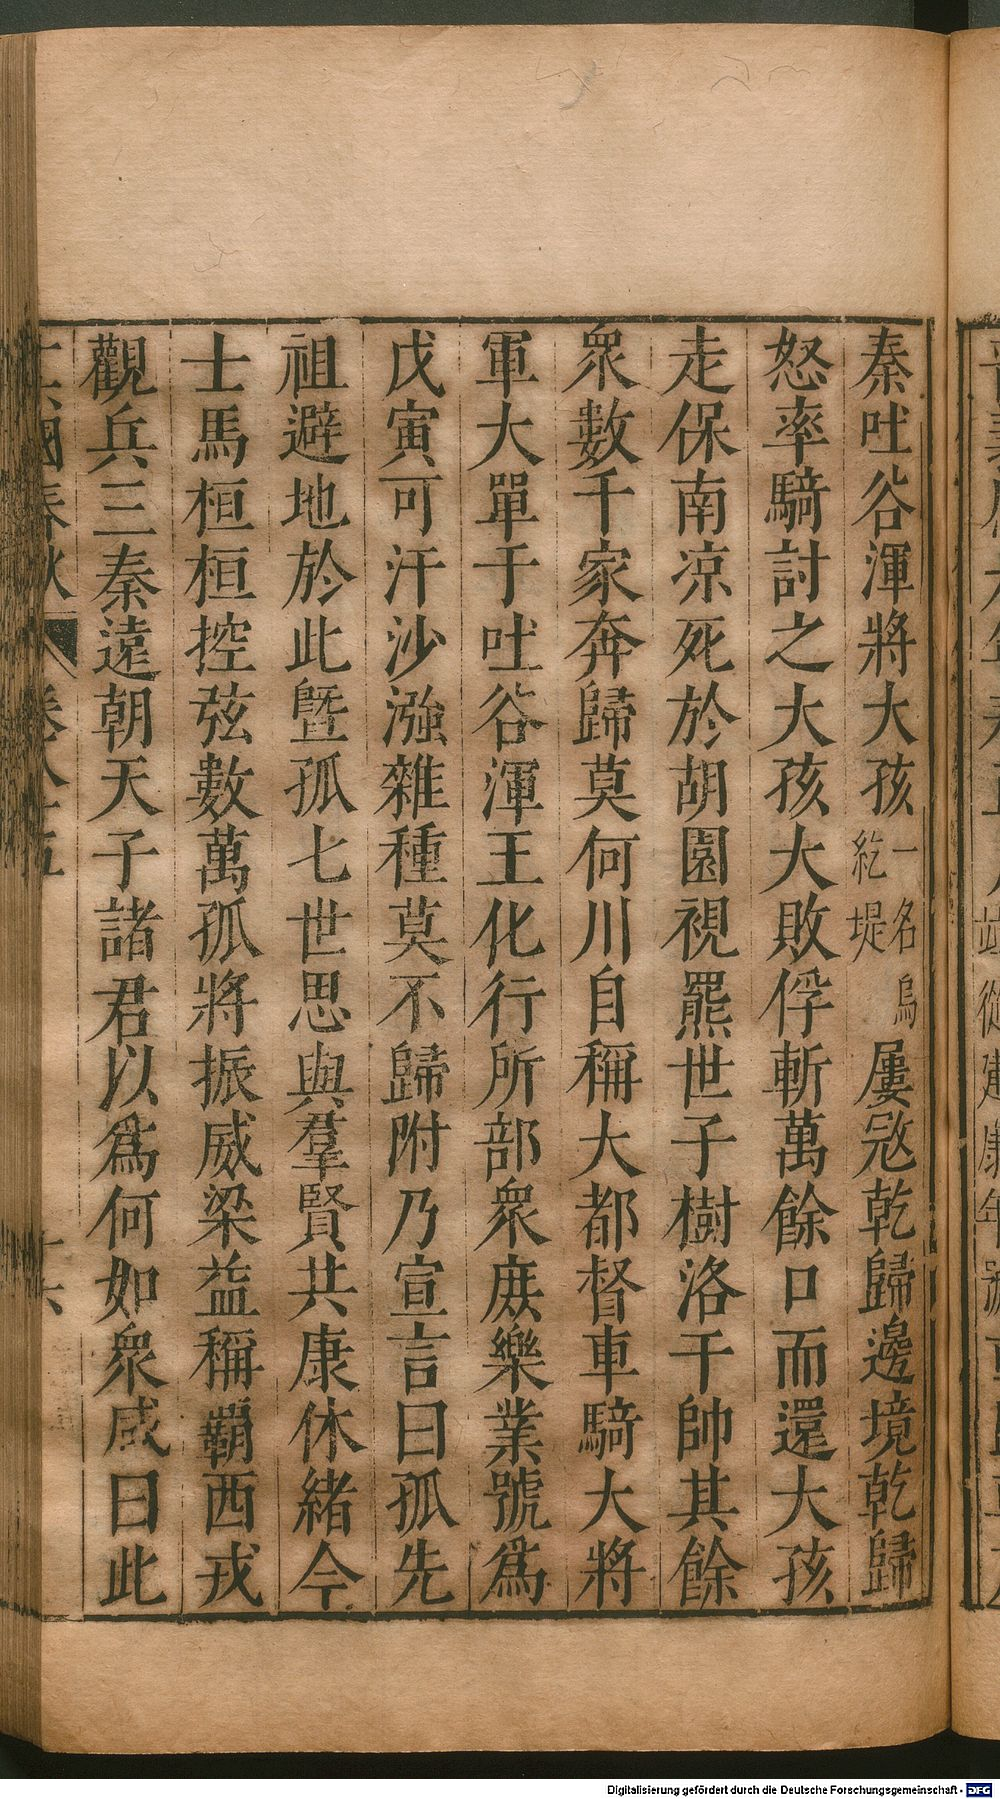 秦吐谷渾將大孩一名烏紇堤屢冦乾歸邊境乾歸
怒率騎討之大孩大敗俘斬萬餘口而還大孩
走保南凉死於胡園視羆世子樹洛干帥其餘
衆數千家奔歸莫何川自稱大都督車騎大將
軍大單于吐谷渾王化行所部衆庶樂業號爲
戊寅可汗沙漒雜種莫不歸附乃宣言曰孤先
祖避地於此曁孤七世思與羣賢共康休緒今
士馬桓桓控弦數萬孤將振威梁益稱覇西戎
觀兵三秦遠朝天子諸君以爲何如衆咸曰此
國春秋
Digitalisierung gefördert durch die Deutsche Forschungsgemeinschaft - DFG